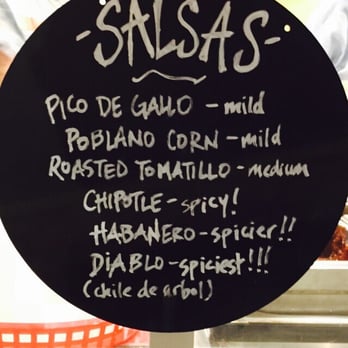 -SALSAS-
PICO DE GALLO - mild
POBLANO CORN - mild
ROASTED TOMATILLO - medium
CHIPOTLE - spicy!
HABANERO - spicier!!
DIABLO - spiciest!!!
(chile de arbol)